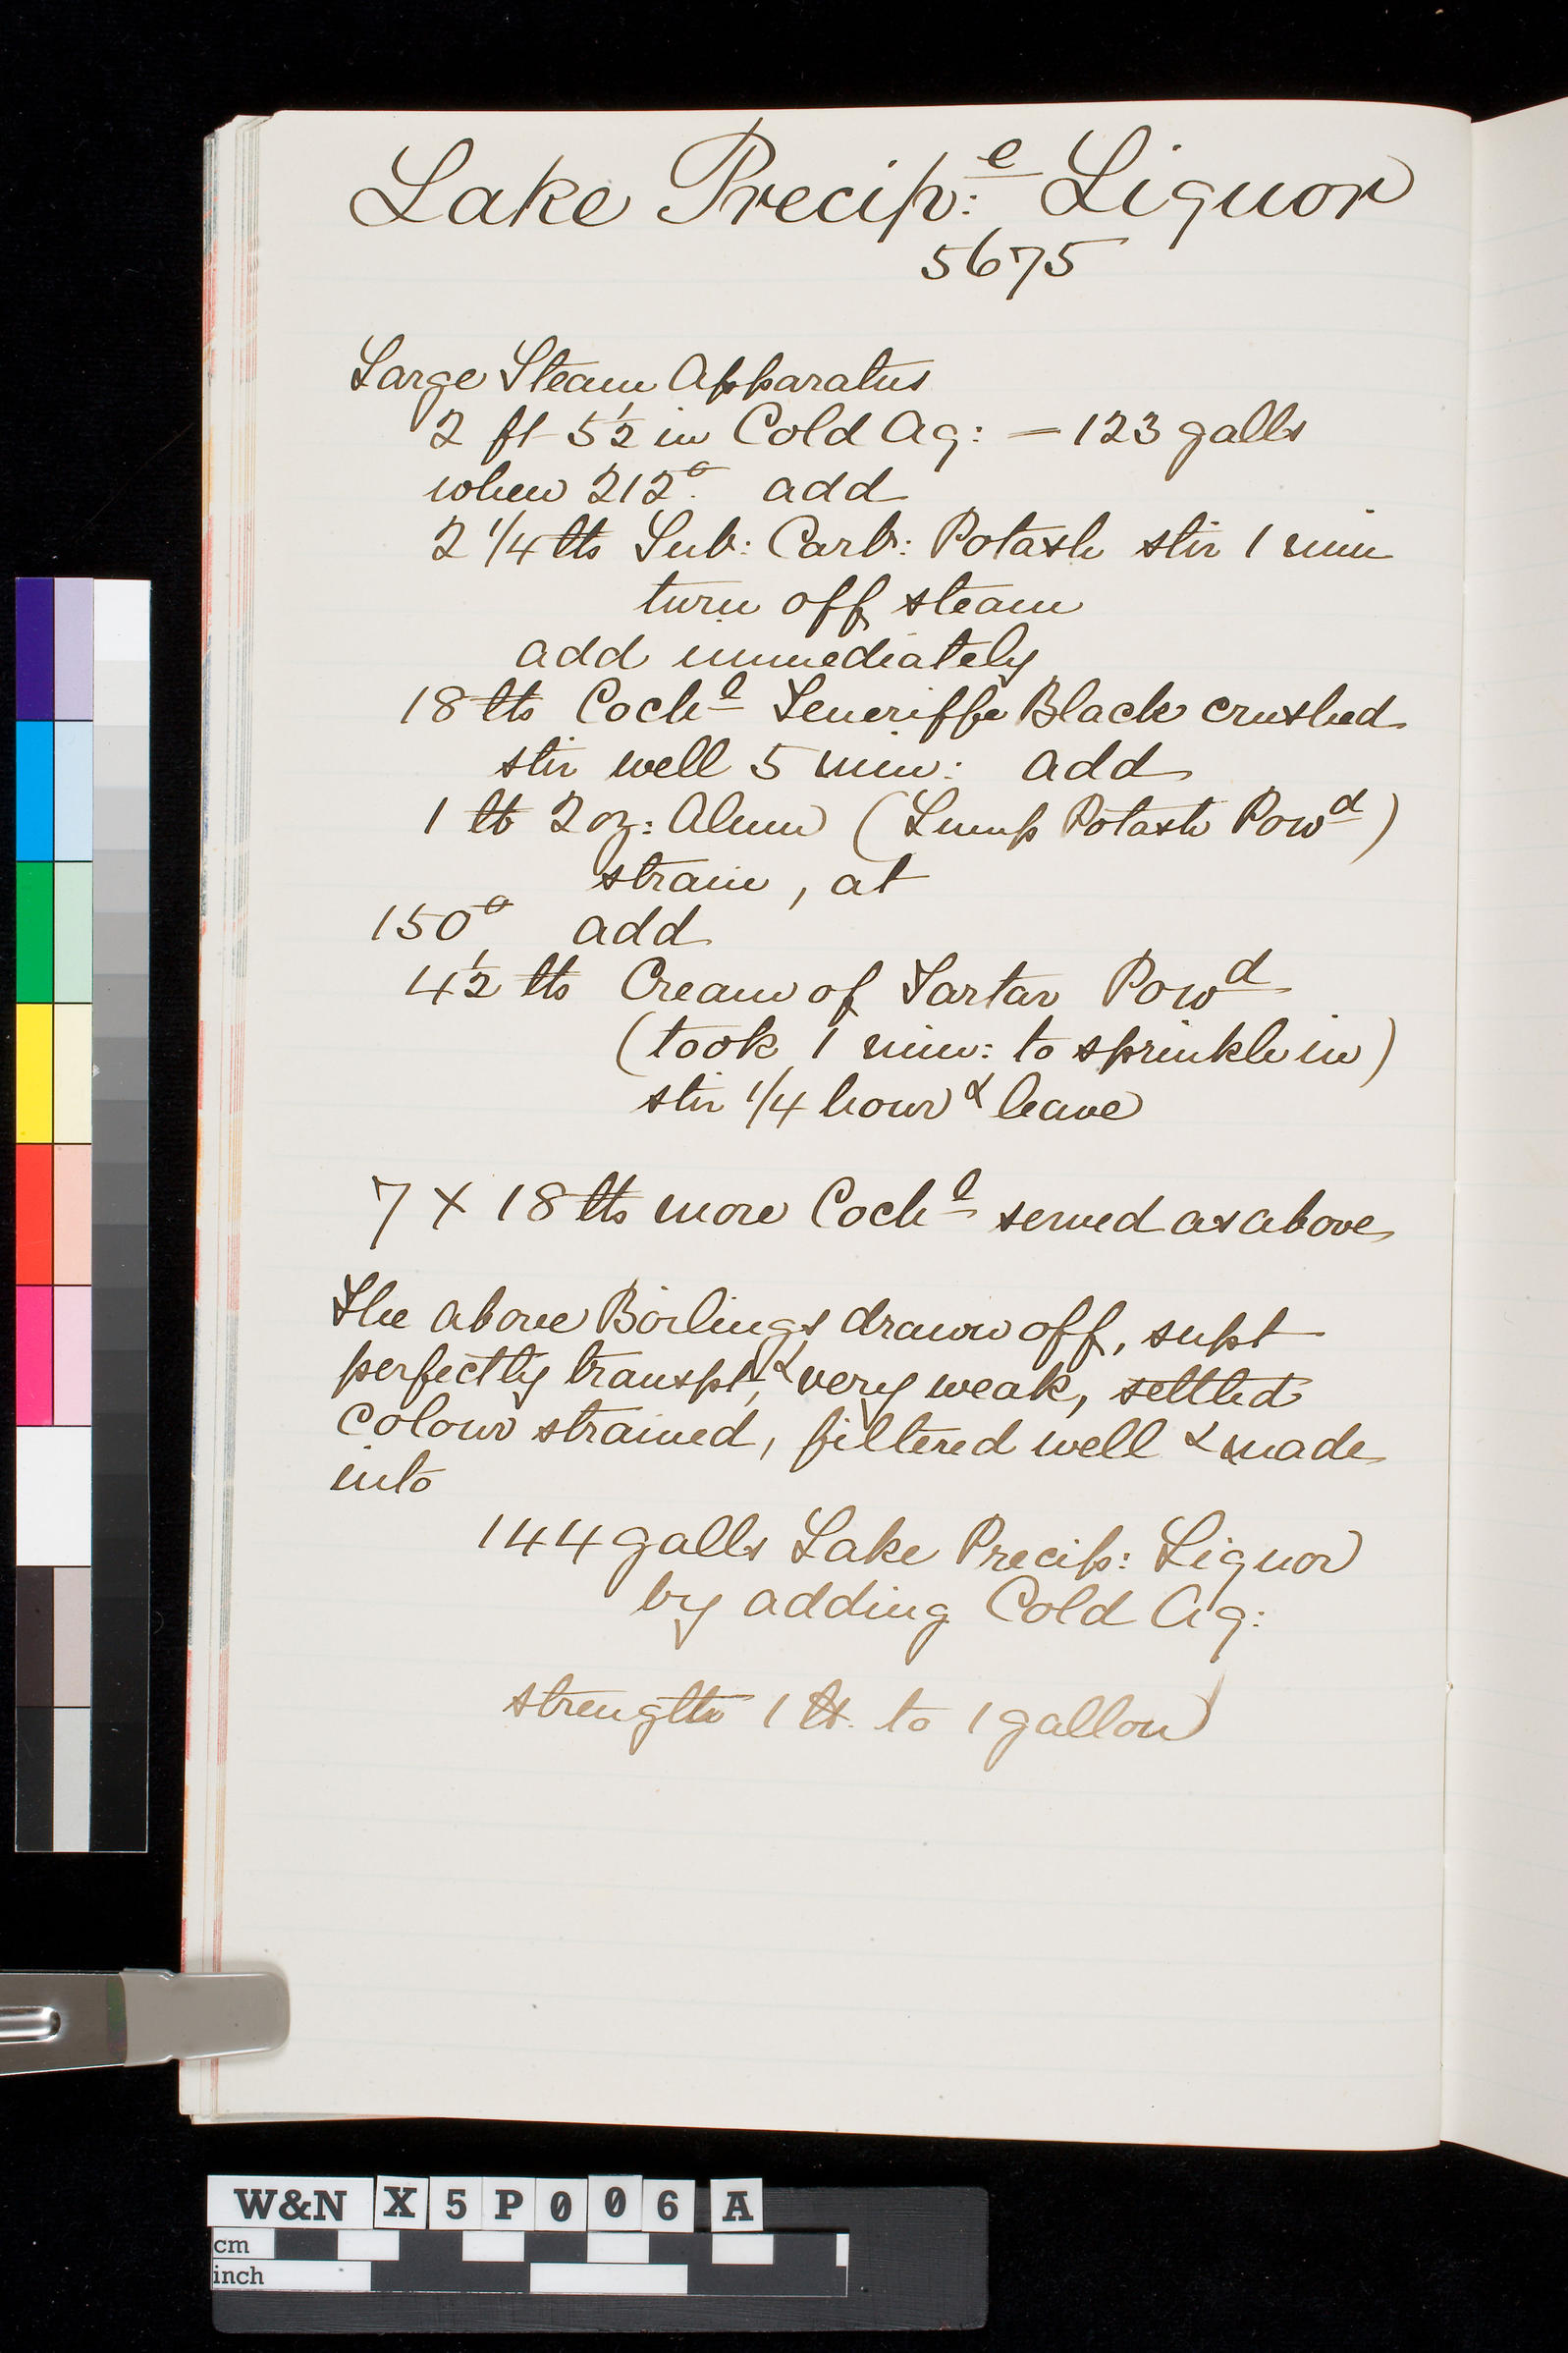 Lake Precip:e Liquor
5675
Large Steam Apparatus
2 ft 5½ in Cold Aq: — 123 galls
when 212° add
2 1/4 lbs Sub: Carb: Potash stir 1 min
turn off steam
add immediately
18 lbs Cochl Teneriffe Black crushed
stir well 5 min: add
1 lb 2 oz: Alum (Lump Potash Powd)
strain, at
150° add
4½ lbs Cream of Tartar Powd
(took 1 min: to sprinkle in)
stir 1/4 hour & leave
7 x 18 lbs more Cochl served as above
The above Boilings drawn off, supt
perfectly transpt, & very weak, settled
colour strained, filtered well & made
into
144 galls Lake Precip: Liquor
by adding Cold Aq:
strength 1 lb. to 1 gallon
W&N X5P006A
cm
inch